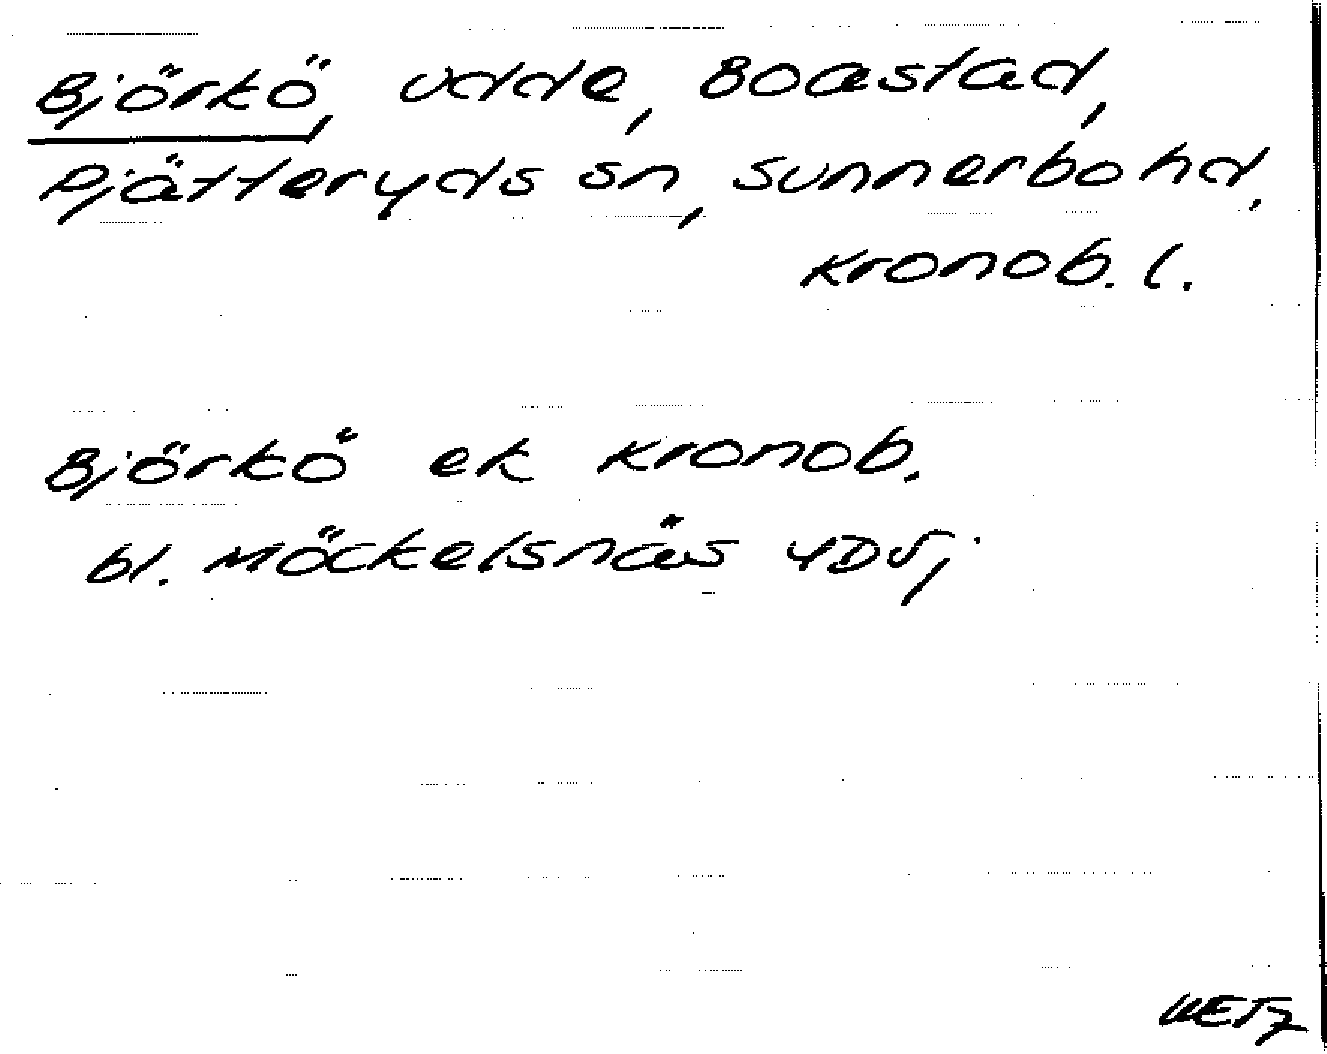 Björkö, udde, Boastad,
Pjätteryds sn, Sunnerbo hd,
Kronob. l.
Björkö ek Kronob.
bl. Möckelsnäs 4D5j